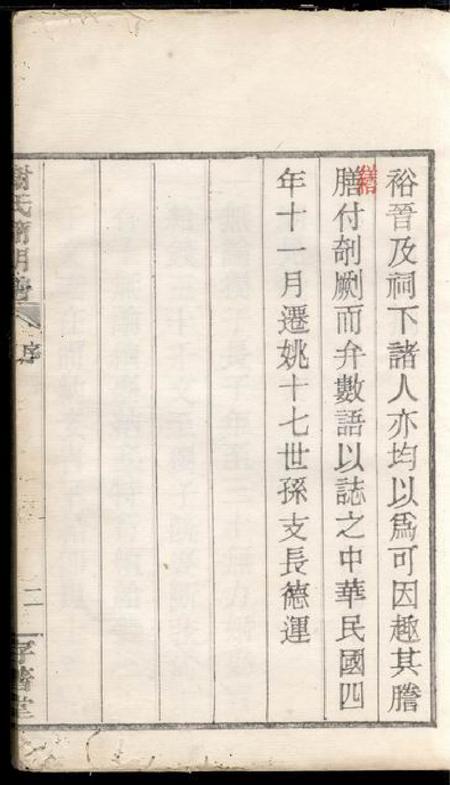 裕晉及祠下諸人亦均以爲可因趣其謄
繕
膳付剞劂而弁數語以誌之中華民國四
年十一月遷姚十七世孫支長德運
氏
序
二
堂